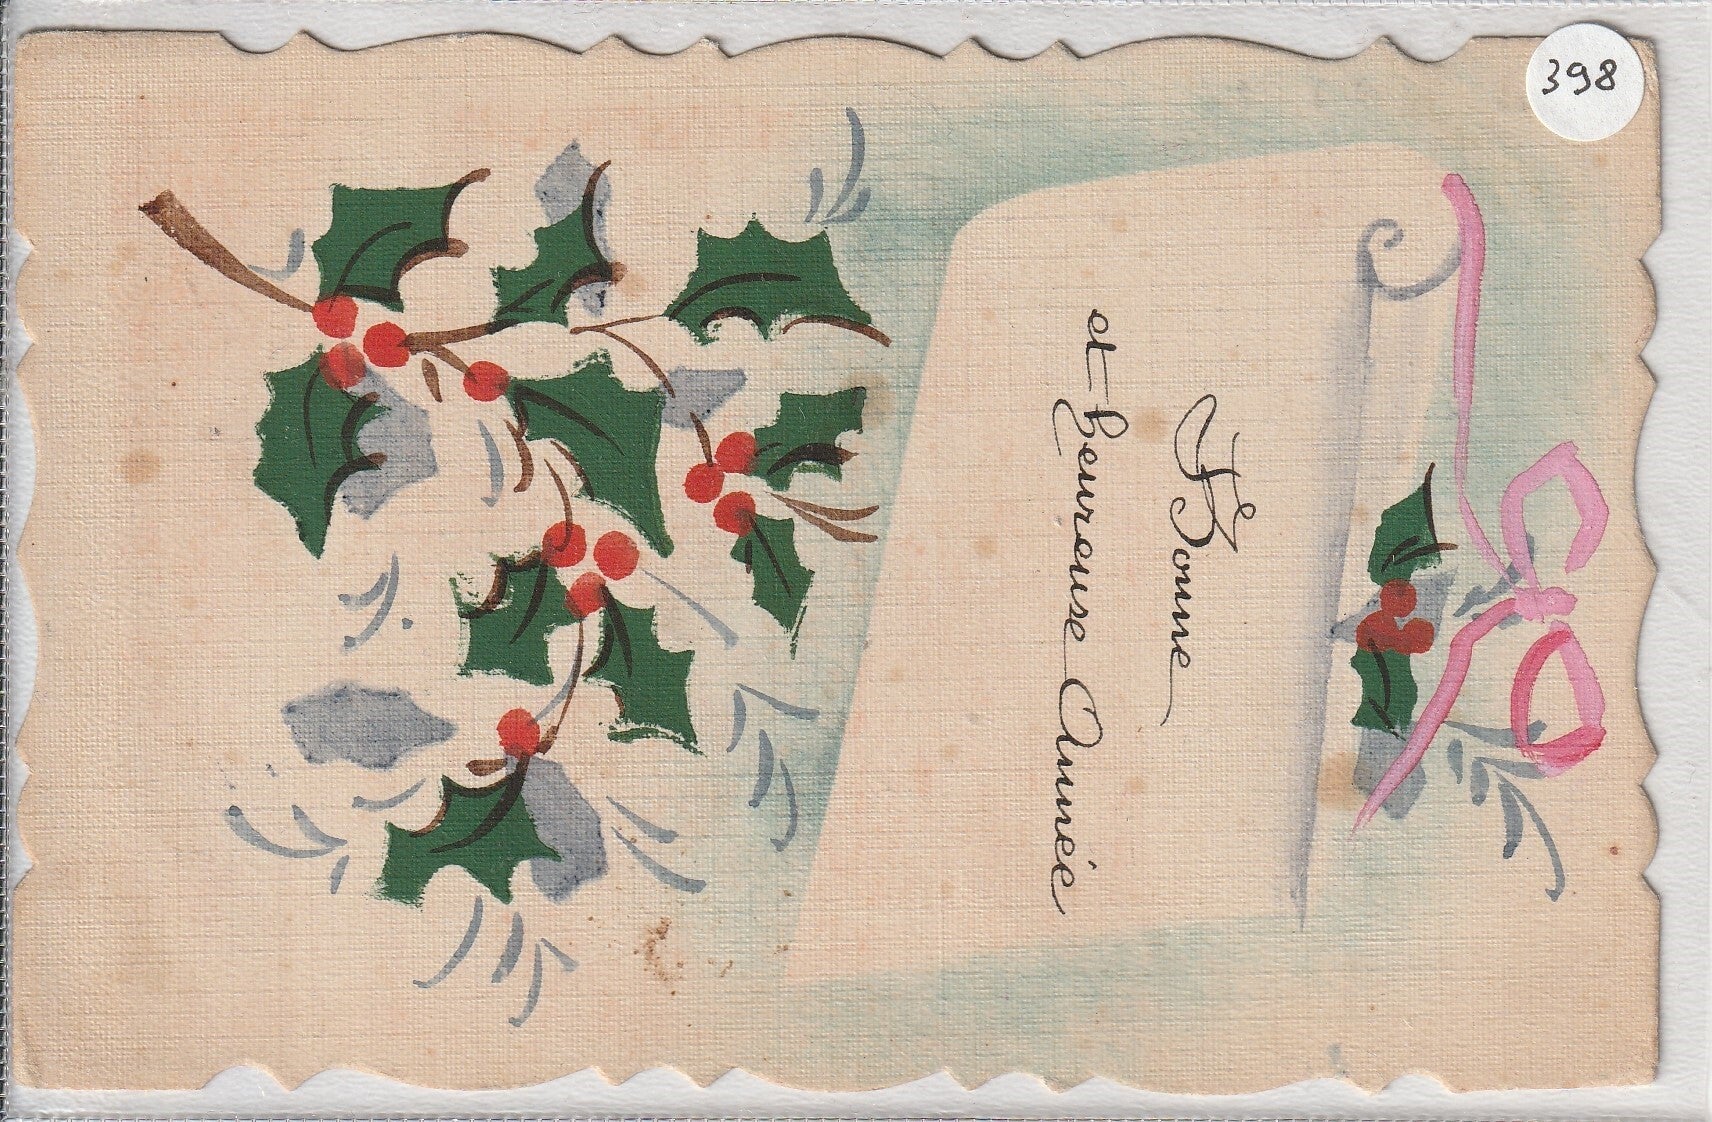 398
Bonne
et heureuse Année